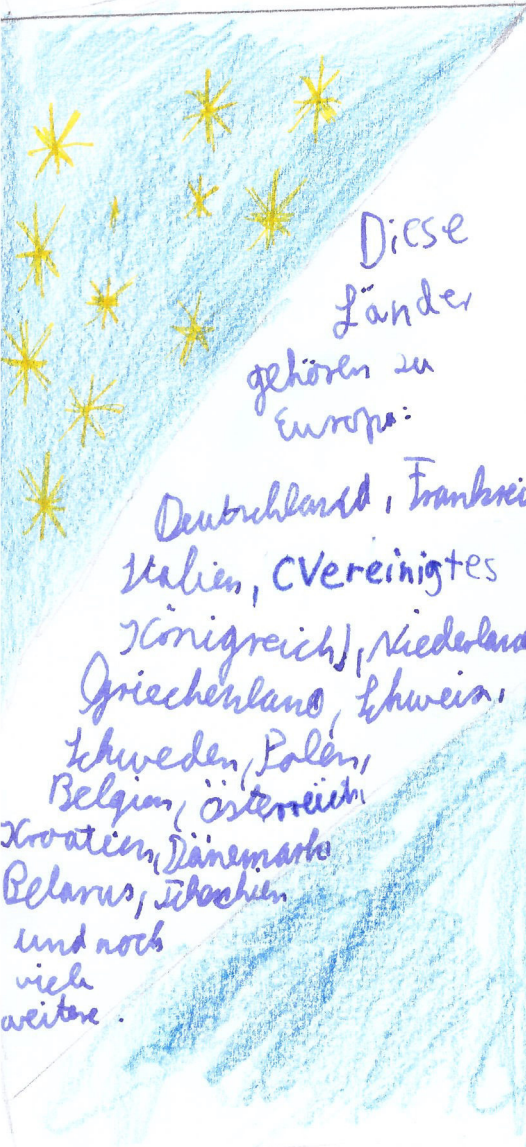 Diese
Länder
gehören zu
Europa:
Deutschland, Frankrei
Italien, (Vereinigtes
Königreich), Niederland
Griechenland, Schweiz,
Schweden, Polen,
Belgien, Österreich,
Kroatien, Dänemark
Belarus, Tschechien
und noch
viele
weitere.